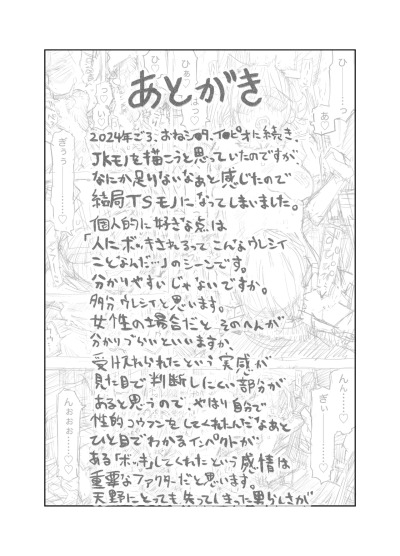 あとがき
2024年ごろ、おねショタ、
に続き、
JKモノを描こうと思っていたのですが、
なにか足りないなあと感じたので
結局TSモノになってしまいました。
個人的に好きな点は
「人にボッキされるってこんなウレシイ
ことなんだ…」のシーンです。
分かりやすいじゃないですか。
多分ウレシイと思います。
女性の場合だとそのへんが
分かりづらいといいますか、
受け入れられたという実感が
見た目で判断しにくい部分が
あると思うので、やはり自分で
性的コウフンをしてくれたんだなあと
ひと目でわかるインパクトが
ある「ボッキ」してくれたという感情は
重要なファクターだと思います。
天野にとっても失ってしまった男らしさが